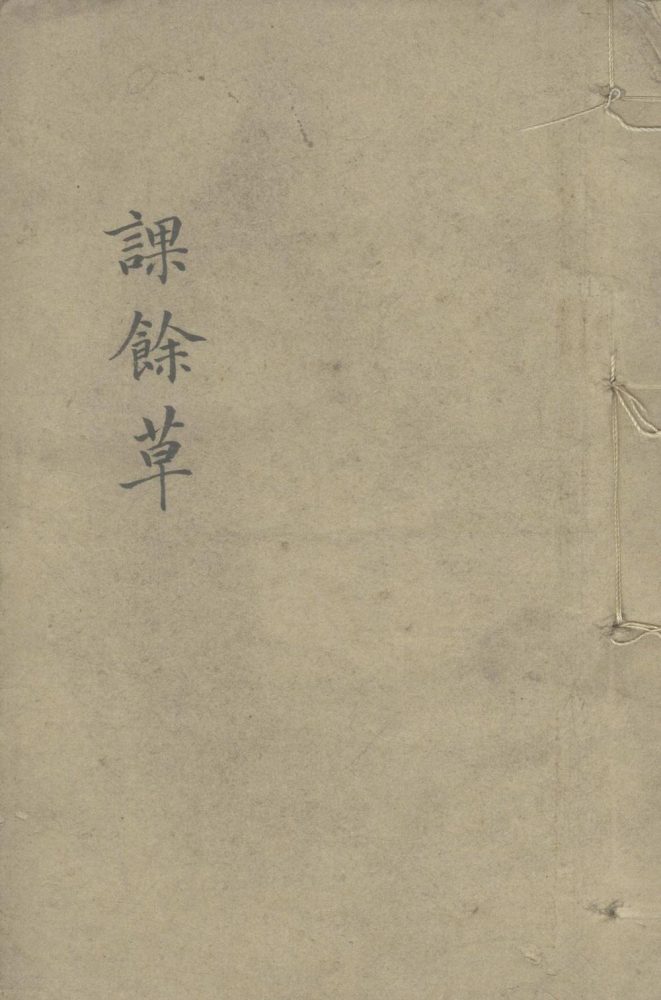 課餘草